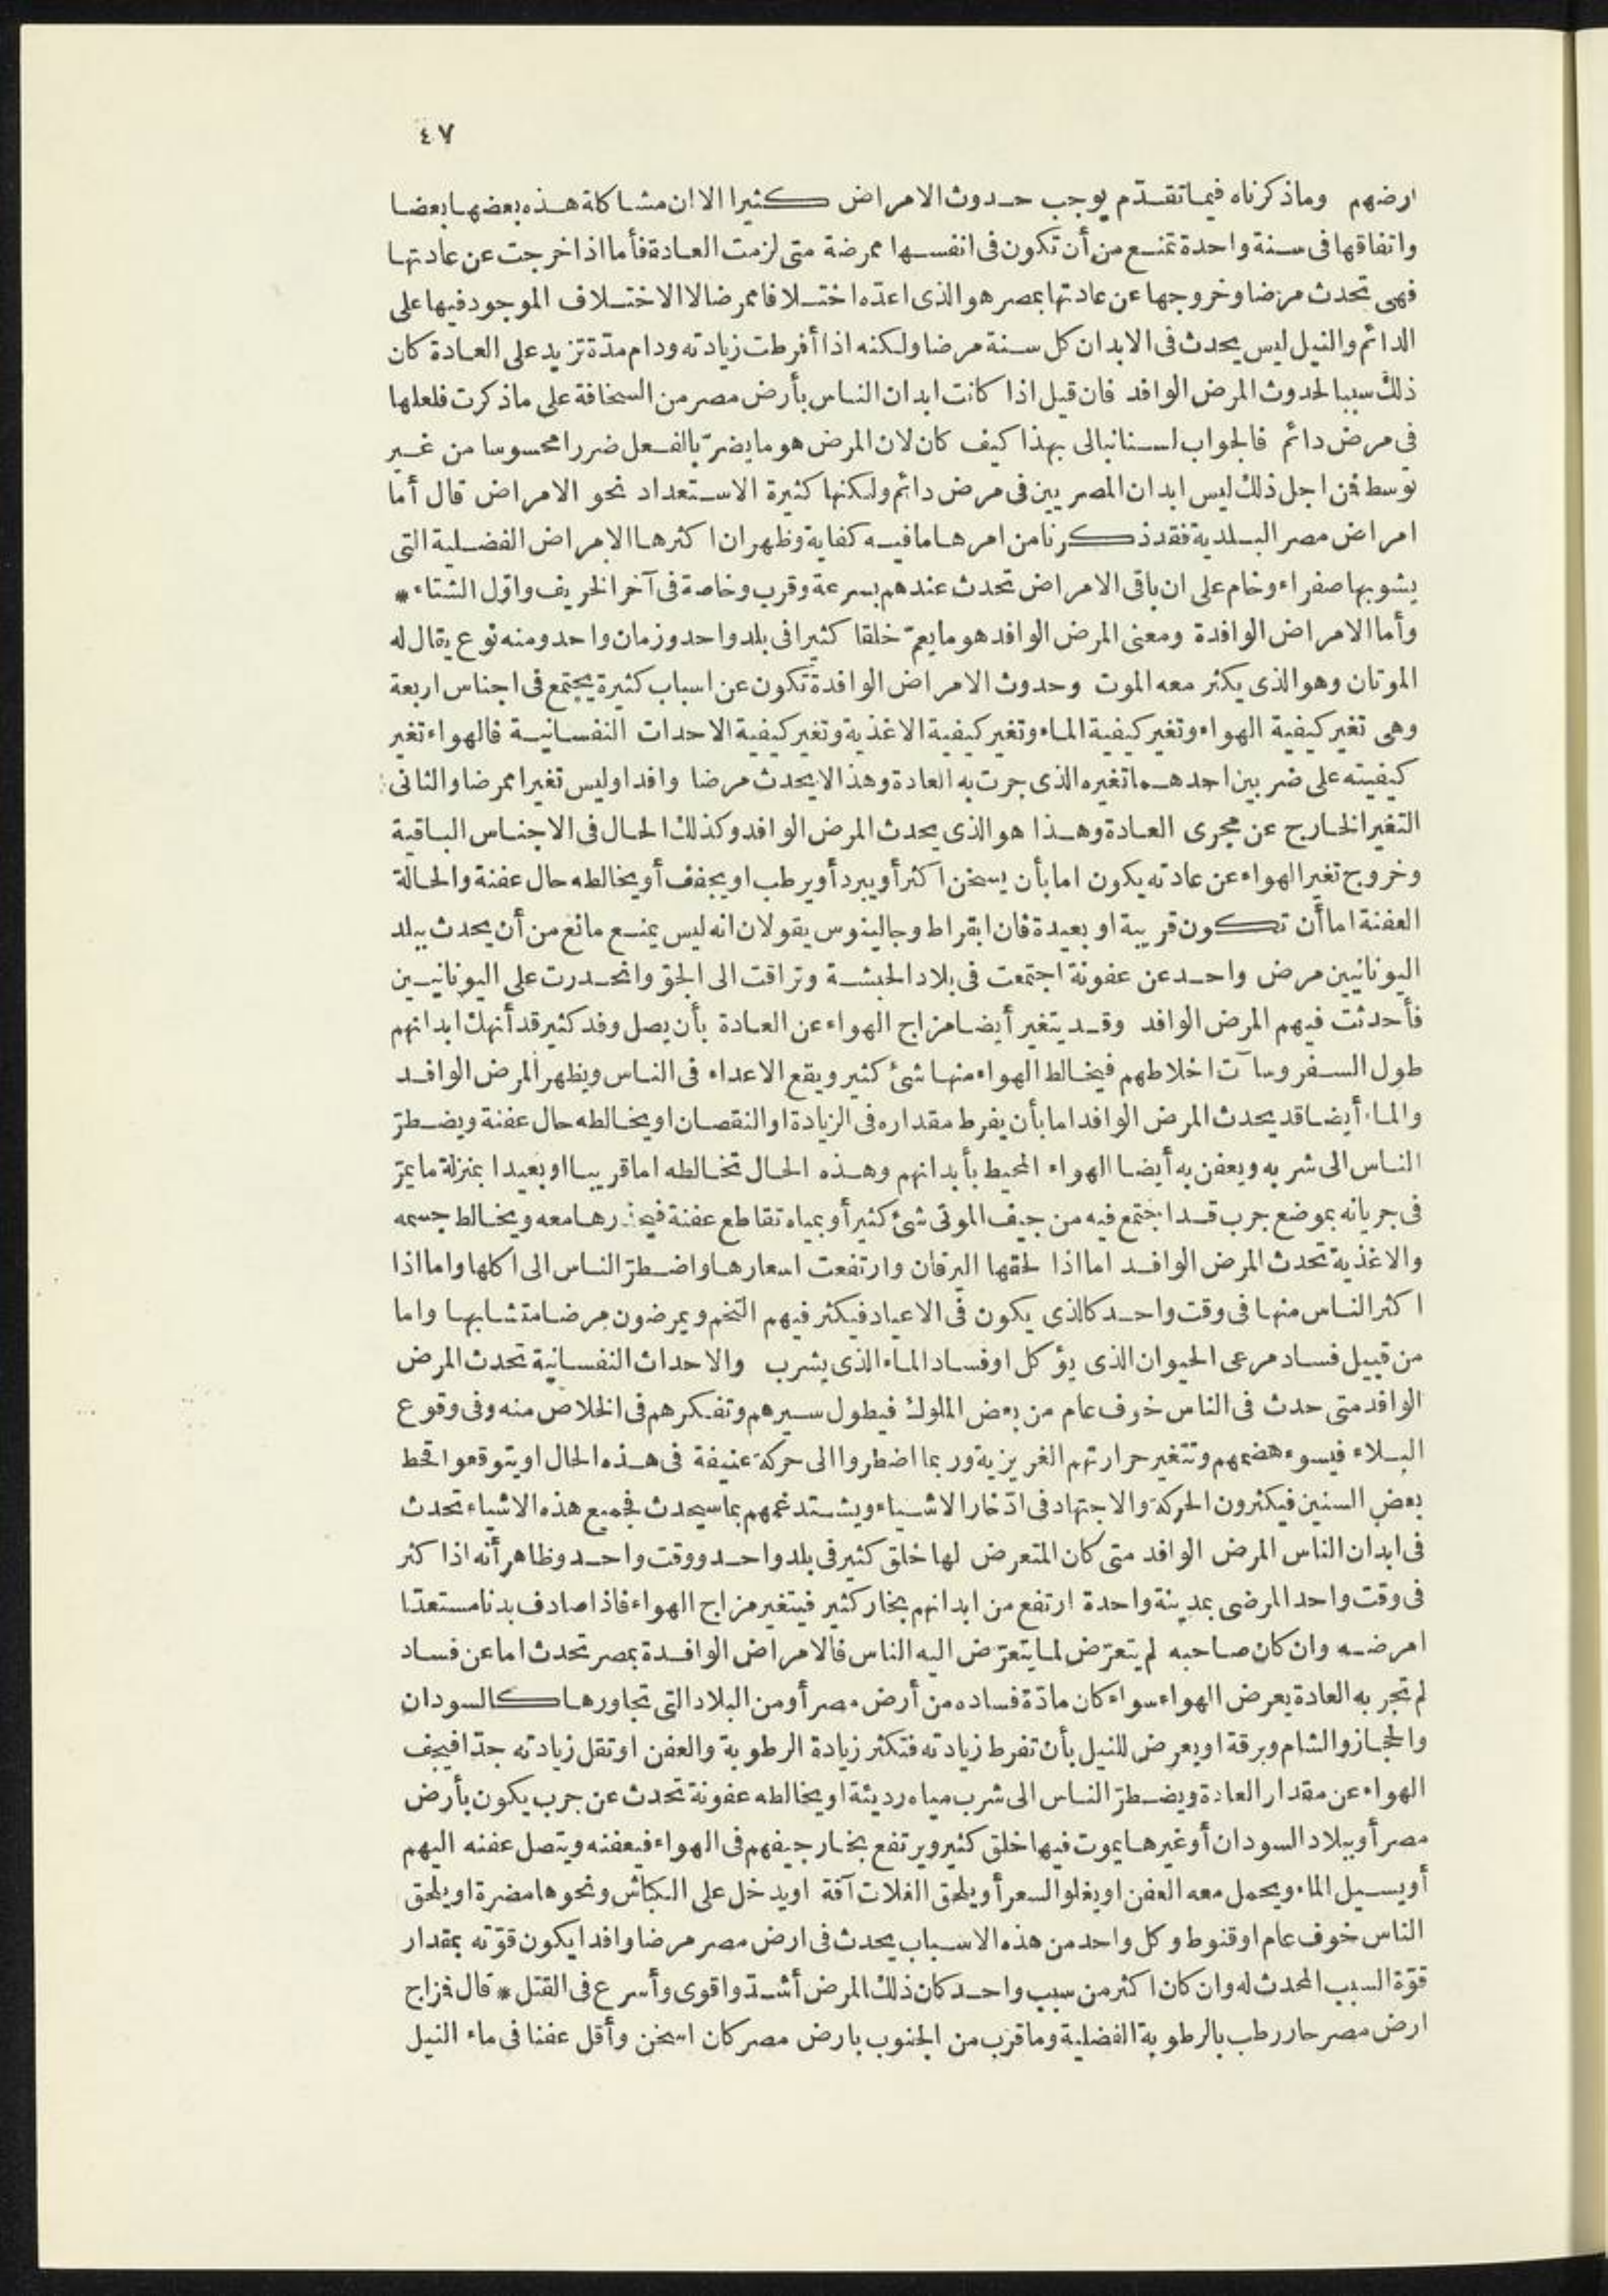 ٤٧
ارضهم وماذكرناه فيماتقدّم يوجب حدوث الامراض كثيرا الا ان مشاكلة هذه بعضها بعضا
واتفاقها فى سنة واحدة تمنع من أن تكون فى انفسها ممرضة متى لزمت العادة فأما اذا خرجت عن عادتها
فهى تحدث مرضا وخروجها عن عادتها بمصر هو الذى اعدّه اختلافا ممرضا لا الاختلاف الموجود فيها على
الدائم والنيل ليس يحدث فى الابدان كل سنة مرضا ولكنه اذا أفرطت زيادته ودام مدّة تزيد على العادة كان
ذلك سببا لحدوث المرض الوافد فان قيل اذا كانت ابدان الناس بأرض مصر من السخافة على ماذكرت فلعلها
فى مرض دائم فالجواب لسنا نبالى بهذا كيف كان لان المرض هو ما يضرّ بالفعل ضررا محسوسا من غير
توسط فمن اجل ذلك ليس ابدان المصريين فى مرض دائم ولكنها كثيرة الاستعداد نحو الامراض قال أما
امراض مصر البلدية فقد ذكرنا من امرها ما فيه كفاية وظهر ان اكثرها الامراض الفضلية التى
يشوبها صفراء وخام على ان باقى الامراض تحدث عندهم بسرعة وقرب وخاصة فى آخر الخريف واوّل الشتاء *
وأما الامراض الوافدة ومعنى المرض الوافد هو ما يعمّ خلقا كثيرا فى بلد واحد وزمان واحد ومنه نوع يقال له
الموتان وهو الذى يكثر معه الموت وحدوث الامراض الوافدة تكون عن اسباب كثيرة يجتمع فى اجناس اربعة
وهى تغير كيفية الهواء وتغير كيفية الماء وتغير كيفية الاغذية وتغير كيفية الاحداث النفسانية فالهواء تغير
كيفيته على ضربين احدهما تغيره الذى جرت به العادة وهذا لا يحدث مرضا وافدا وليس تغيرا ممرضا والثانى
التغير الخارج عن مجرى العادة وهذا هو الذى يحدث المرض الوافد وكذلك الحال فى الاجناس الباقية
وخروج تغير الهواء عن عادته يكون اما بأن يسخن اكثر أو يبرد أو يرطب او يجفف أو يخالطه حال عفنة والحالة
العفنة اما أن تكون قريبة او بعيدة فان ابقراط وجالينوس يقولان انه ليس يمنع مانع من أن يحدث ببلد
اليونانيين مرض واحد عن عفونة اجتمعت فى بلاد الحبشة وتراقت الى الجوّ وانحدرت على اليونانيين
فأحدثت فيهم المرض الوافد وقد يتغير أيضا مزاج الهواء عن العادة بأن يصل وفد كثير قد أنهك ابدانهم
طول السفر وساءت اخلاطهم فيخالط الهواء منها شئ كثير ويقع الاعداء فى الناس ويظهر المرض الوافد
والماء أيضا قد يحدث المرض الوافد اما بأن يفرط مقداره فى الزيادة او النقصان او يخالطه حال عفنة ويضطرّ
الناس الى شربه ويعفن به أيضا الهواء المحيط بأبدانهم وهذه الحال تخالطه اما قريبا او بعيدا بمنزلة ما يمرّ
فى جريانه بموضع جرب قد اجتمع فيه من جيف الموتى شئ كثير أو بمياه تقاطع عفنة رها معه ويخالط جسمه
والاغذية تحدث المرض الوافد اما اذا لحقها اليرقان وارتفعت اسعارها واضطرّ الناس الى اكلها واما اذا
اكثر الناس منها فى وقت واحد كالذى يكون فى الاعياد فيكثر فيهم التخم ويمرضون مرضا متشابها واما
من قبيل فساد مرعى الحيوان الذى يؤكل او فساد الماء الذى يشرب والاحداث النفسانية تحدث المرض
الوافد متى حدث فى الناس خوف عام من بعض الملوك فيطول سيرهم وتفكرهم فى الخلاص منه وفى وقوع
البلاء فيسوء هضمهم وتتغير حرارتهم الغريزية وربما اضطروا الى حركة عنيفة فى هذه الحال او يتوقعوا قحط
بعض السنين فيكثرون الحركة والاجتهاد فى ادّخار الاشياء ويشتد غمهم بما سيحدث فجميع هذه الاشياء تحدث
فى ابدان الناس المرض الوافد متى كان المتعرض لها خلق كثير فى بلد واحد ووقت واحد وظاهر أنه اذا كثر
فى وقت واحد المرضى بمدينة واحدة ارتفع من ابدانهم بخار كثير فيتغير مزاج الهواء فاذا صادف بدنا مستعدّا
امرضه وان كان صاحبه لم يتعرّض لما يتعرّض اليه الناس فالامراض الوافدة بمصر تحدث اما عن فساد
لم تجر به العادة يعرض الهواء سواء كان مادّة فساده من أرض مصر أو من البلاد التى تجاورها كالسودان
والحجاز والشام وبرقة او يعرض للنيل بأن تفرط زيادته فتكثر زيادة الرطوبة والعفن او تقل زيادته جدّا فيجف
الهواء عن مقدار العادة ويضطرّ الناس الى شرب مياه رديئة او يخالطه عفونة تحدث عن جرب يكون بأرض
مصر أو ببلاد السودان أو غيرها يموت فيها خلق كثير ويرتفع بخار جيفهم فى الهواء فيعفنه ويتصل عفنه اليهم
أو يسيل الماء ويحمل معه العفن او يغلو السعر أو يلحق الغلات آفة او يدخل على الكباش ونحوها مضرة او يلحق
الناس خوف عام او قنوط وكل واحد من هذه الاسباب يحدث فى ارض مصر مرضا وافدا يكون قوّته بمقدار
قوّة السبب المحدث له وان كان اكثر من سبب واحد كان ذلك المرض أشدّ واقوى وأسرع فى القتل * قال فمزاج
ارض مصر حار رطب بالرطوبة الفضلية وما قرب من الجنوب بارض مصر كان اسخن وأقل عفنا فى ماء النيل